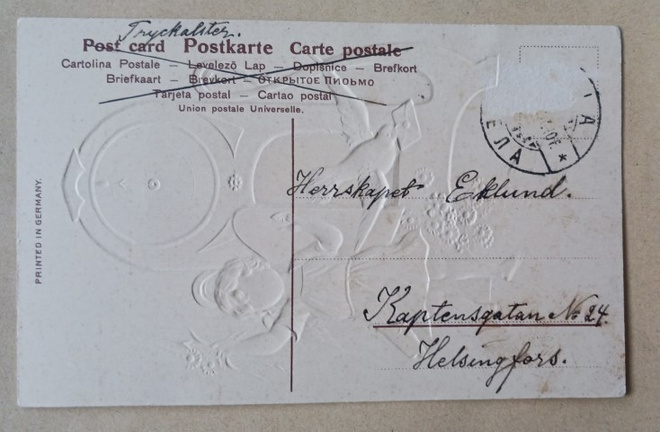 Tryckalster.
Post card Postkarte Carte postale
Cartolina Postale – Levelező Lap – Dopisnice – Brefkort
Briefkaart – Brevkort – Открытое письмо
Tarjeta postal – Cartao postal
Union postale Universelle.
PRINTED IN GERMANY.
Herrskapet Eklund.
Kaptensgatan No 24.
Helsingfors.